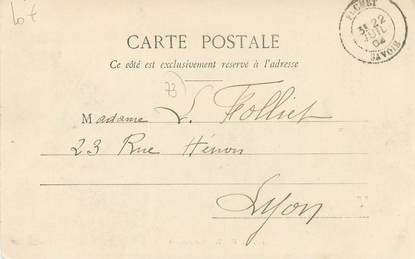 lot
CARTE POSTALE
Ce côté est exclusivement reservé à l'adresse
73
Madame L. Folliet
23 Rue Hénon
Lyon
22
JUIL
02
SAVOIE